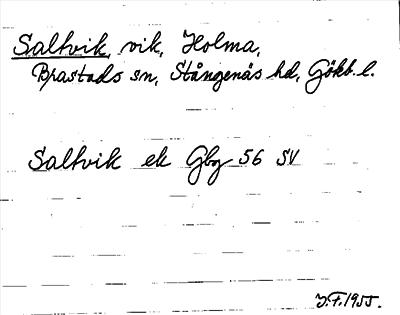 Saltvik, vik, Holma,
Brastads sn, Stångenäs hd, Gökb. l.
Saltvik ek Gbg 56 SV
J.F. 1955.